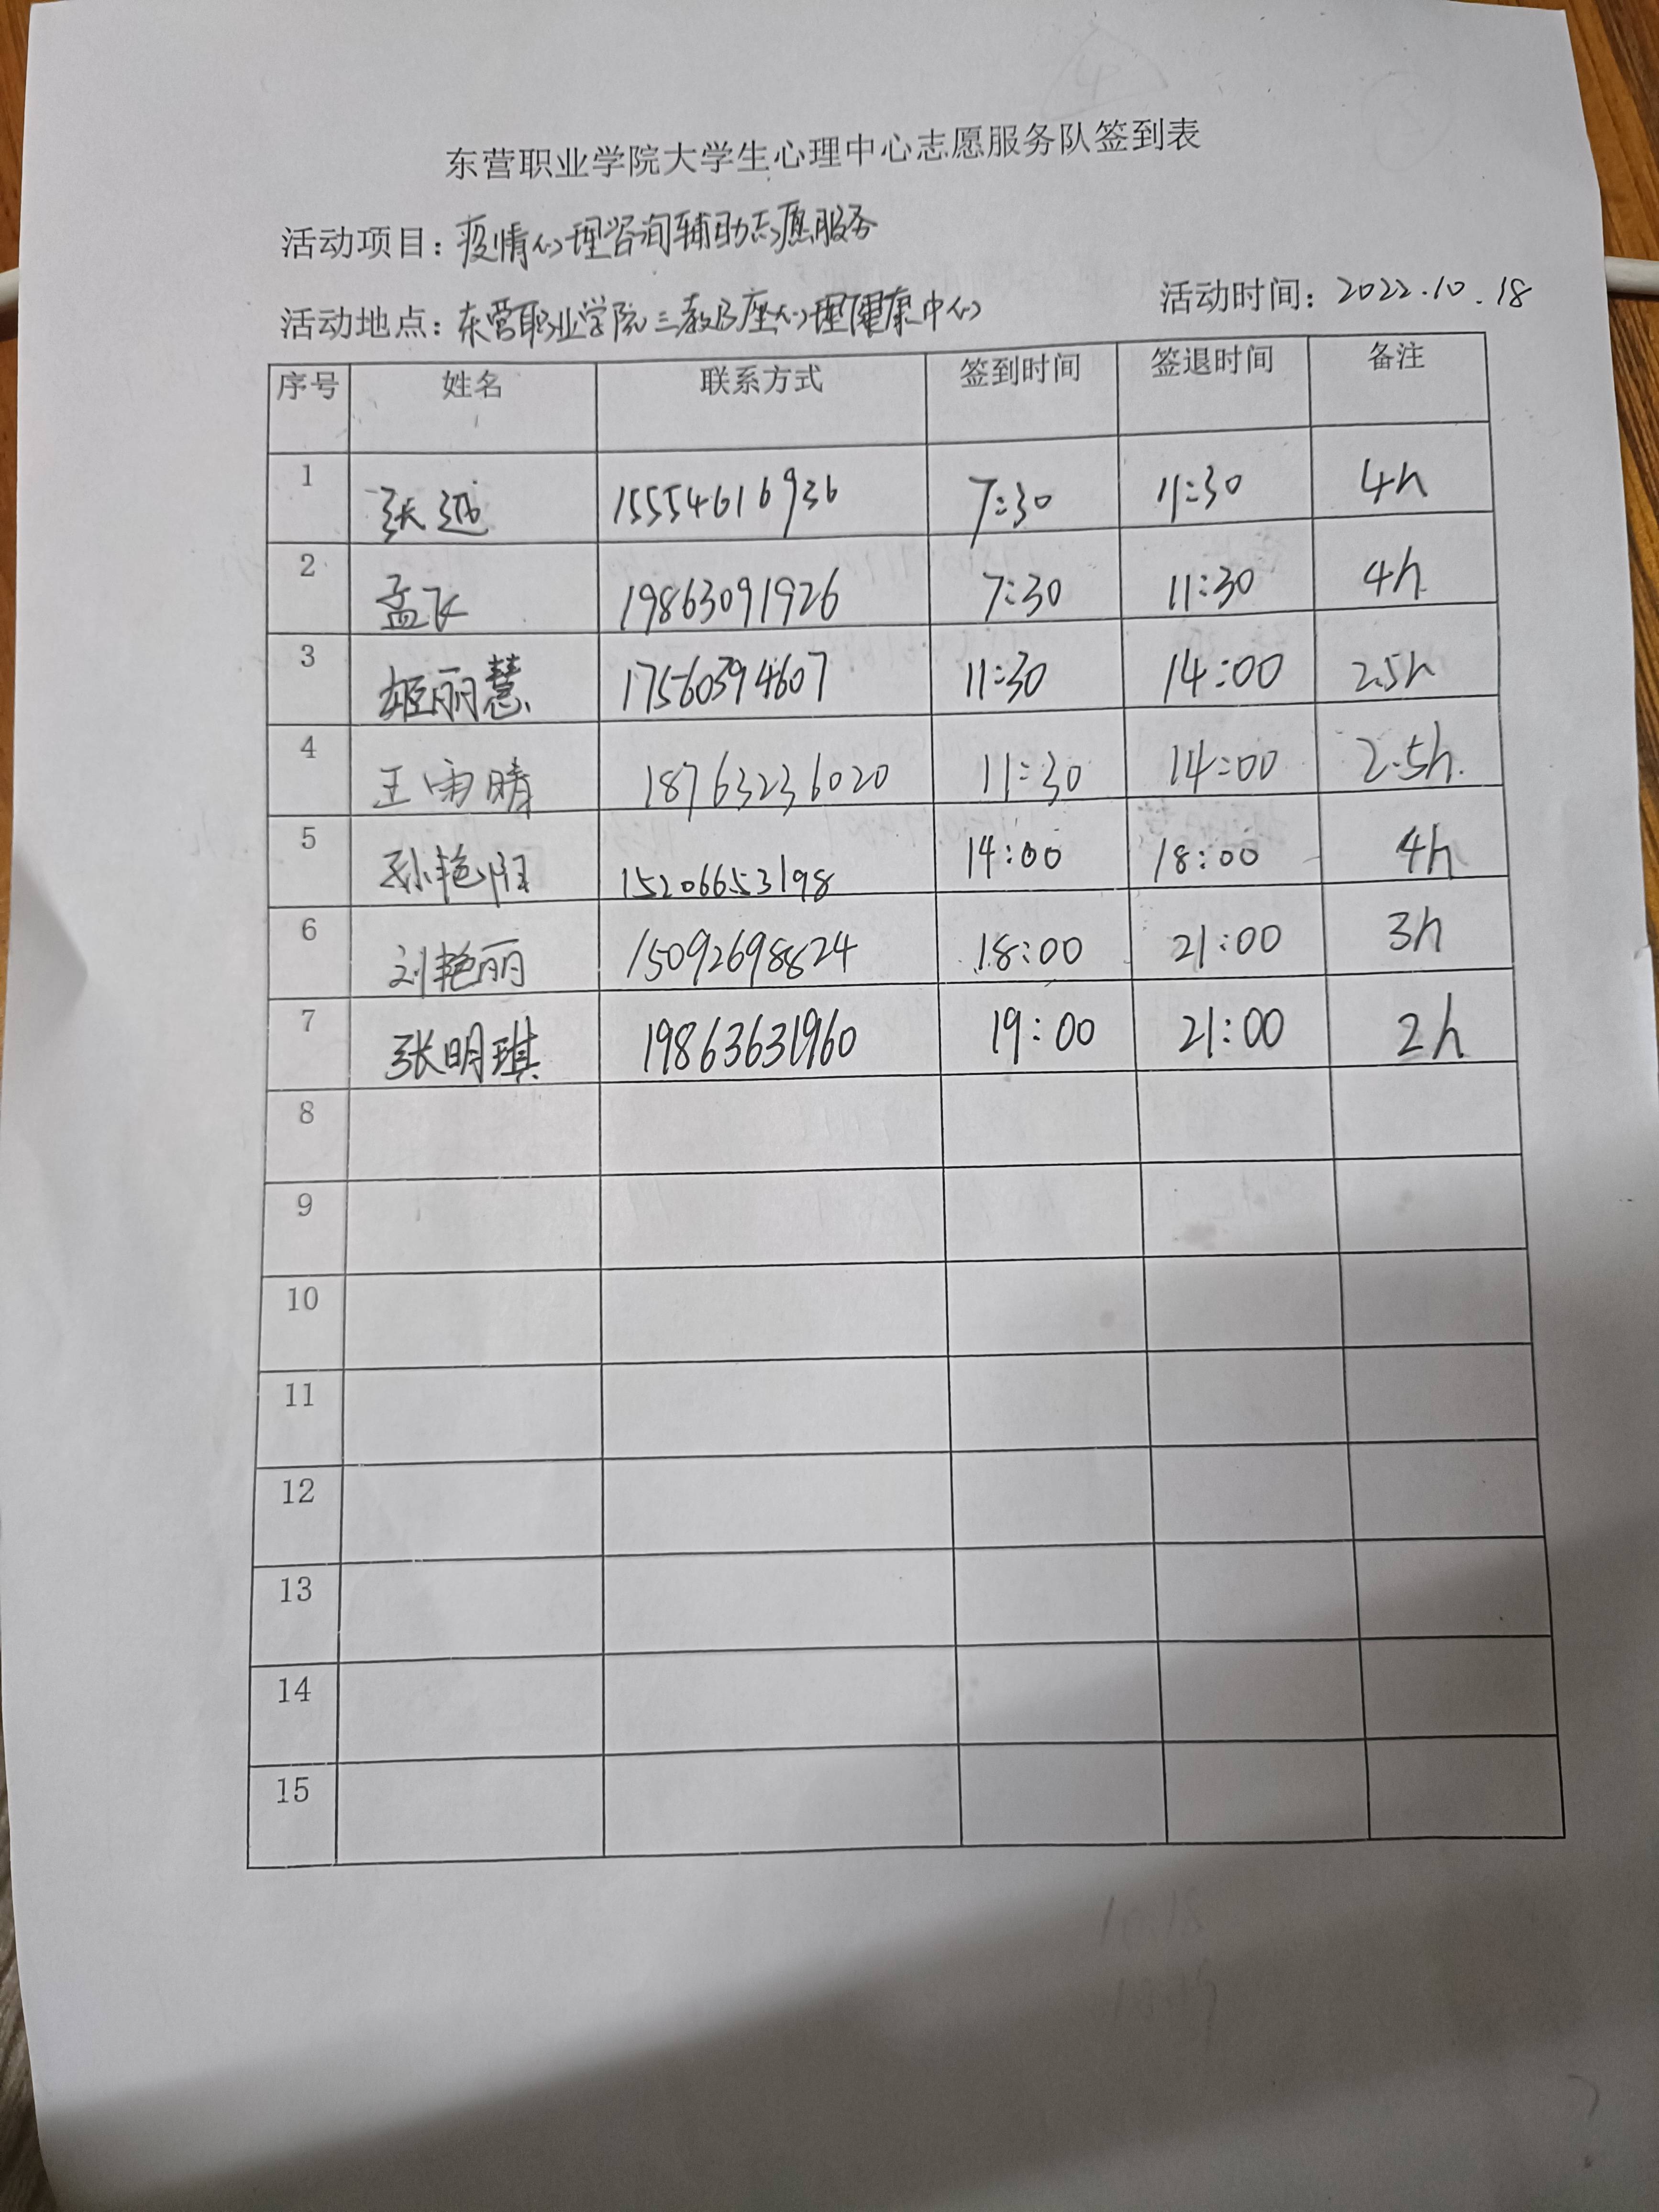 东营职业学院大学生心理中心志愿服务队签到表
活动项目：疫情心理咨询辅助志愿服务
活动地点：东营职业学院三教B座大心理健康中心 活动时间：2022.10.18
序号 姓名 联系方式 签到时间 签退时间 备注
1 张 15554616936 7:30 11:30 4h
2 孟飞 19863091926 7:30 11:30 4h
3 姬丽慧 17560394607 11:30 14:00 2.5h
4 王雨晴 18763236020 11:30 14:00 2.5h.
5 孙艳 15206653198 14:00 18:00 4h
6 刘艳丽 15092698824 18:00 21:00 3h
7 张明琪 19863631960 19:00 21:00 2h
8
9
10
11
12
13
14
15